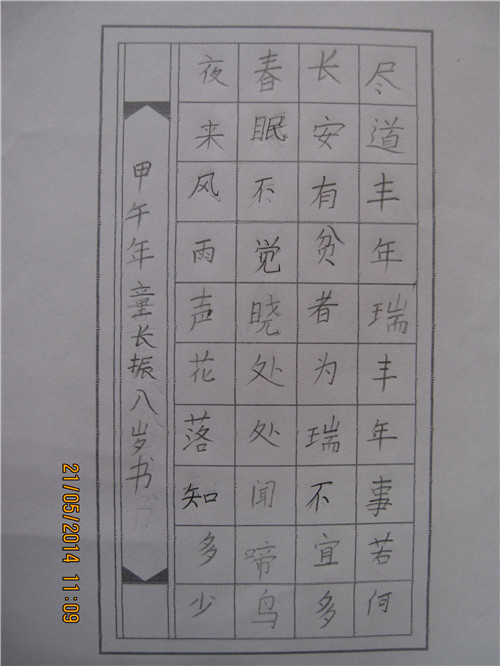 尽道丰年瑞丰年事若何
长安有贫者为瑞不宜多
春眠不觉晓处处闻啼鸟
夜来风雨声花落知多少
甲午年童长振八岁书
21/05/2014 11:09